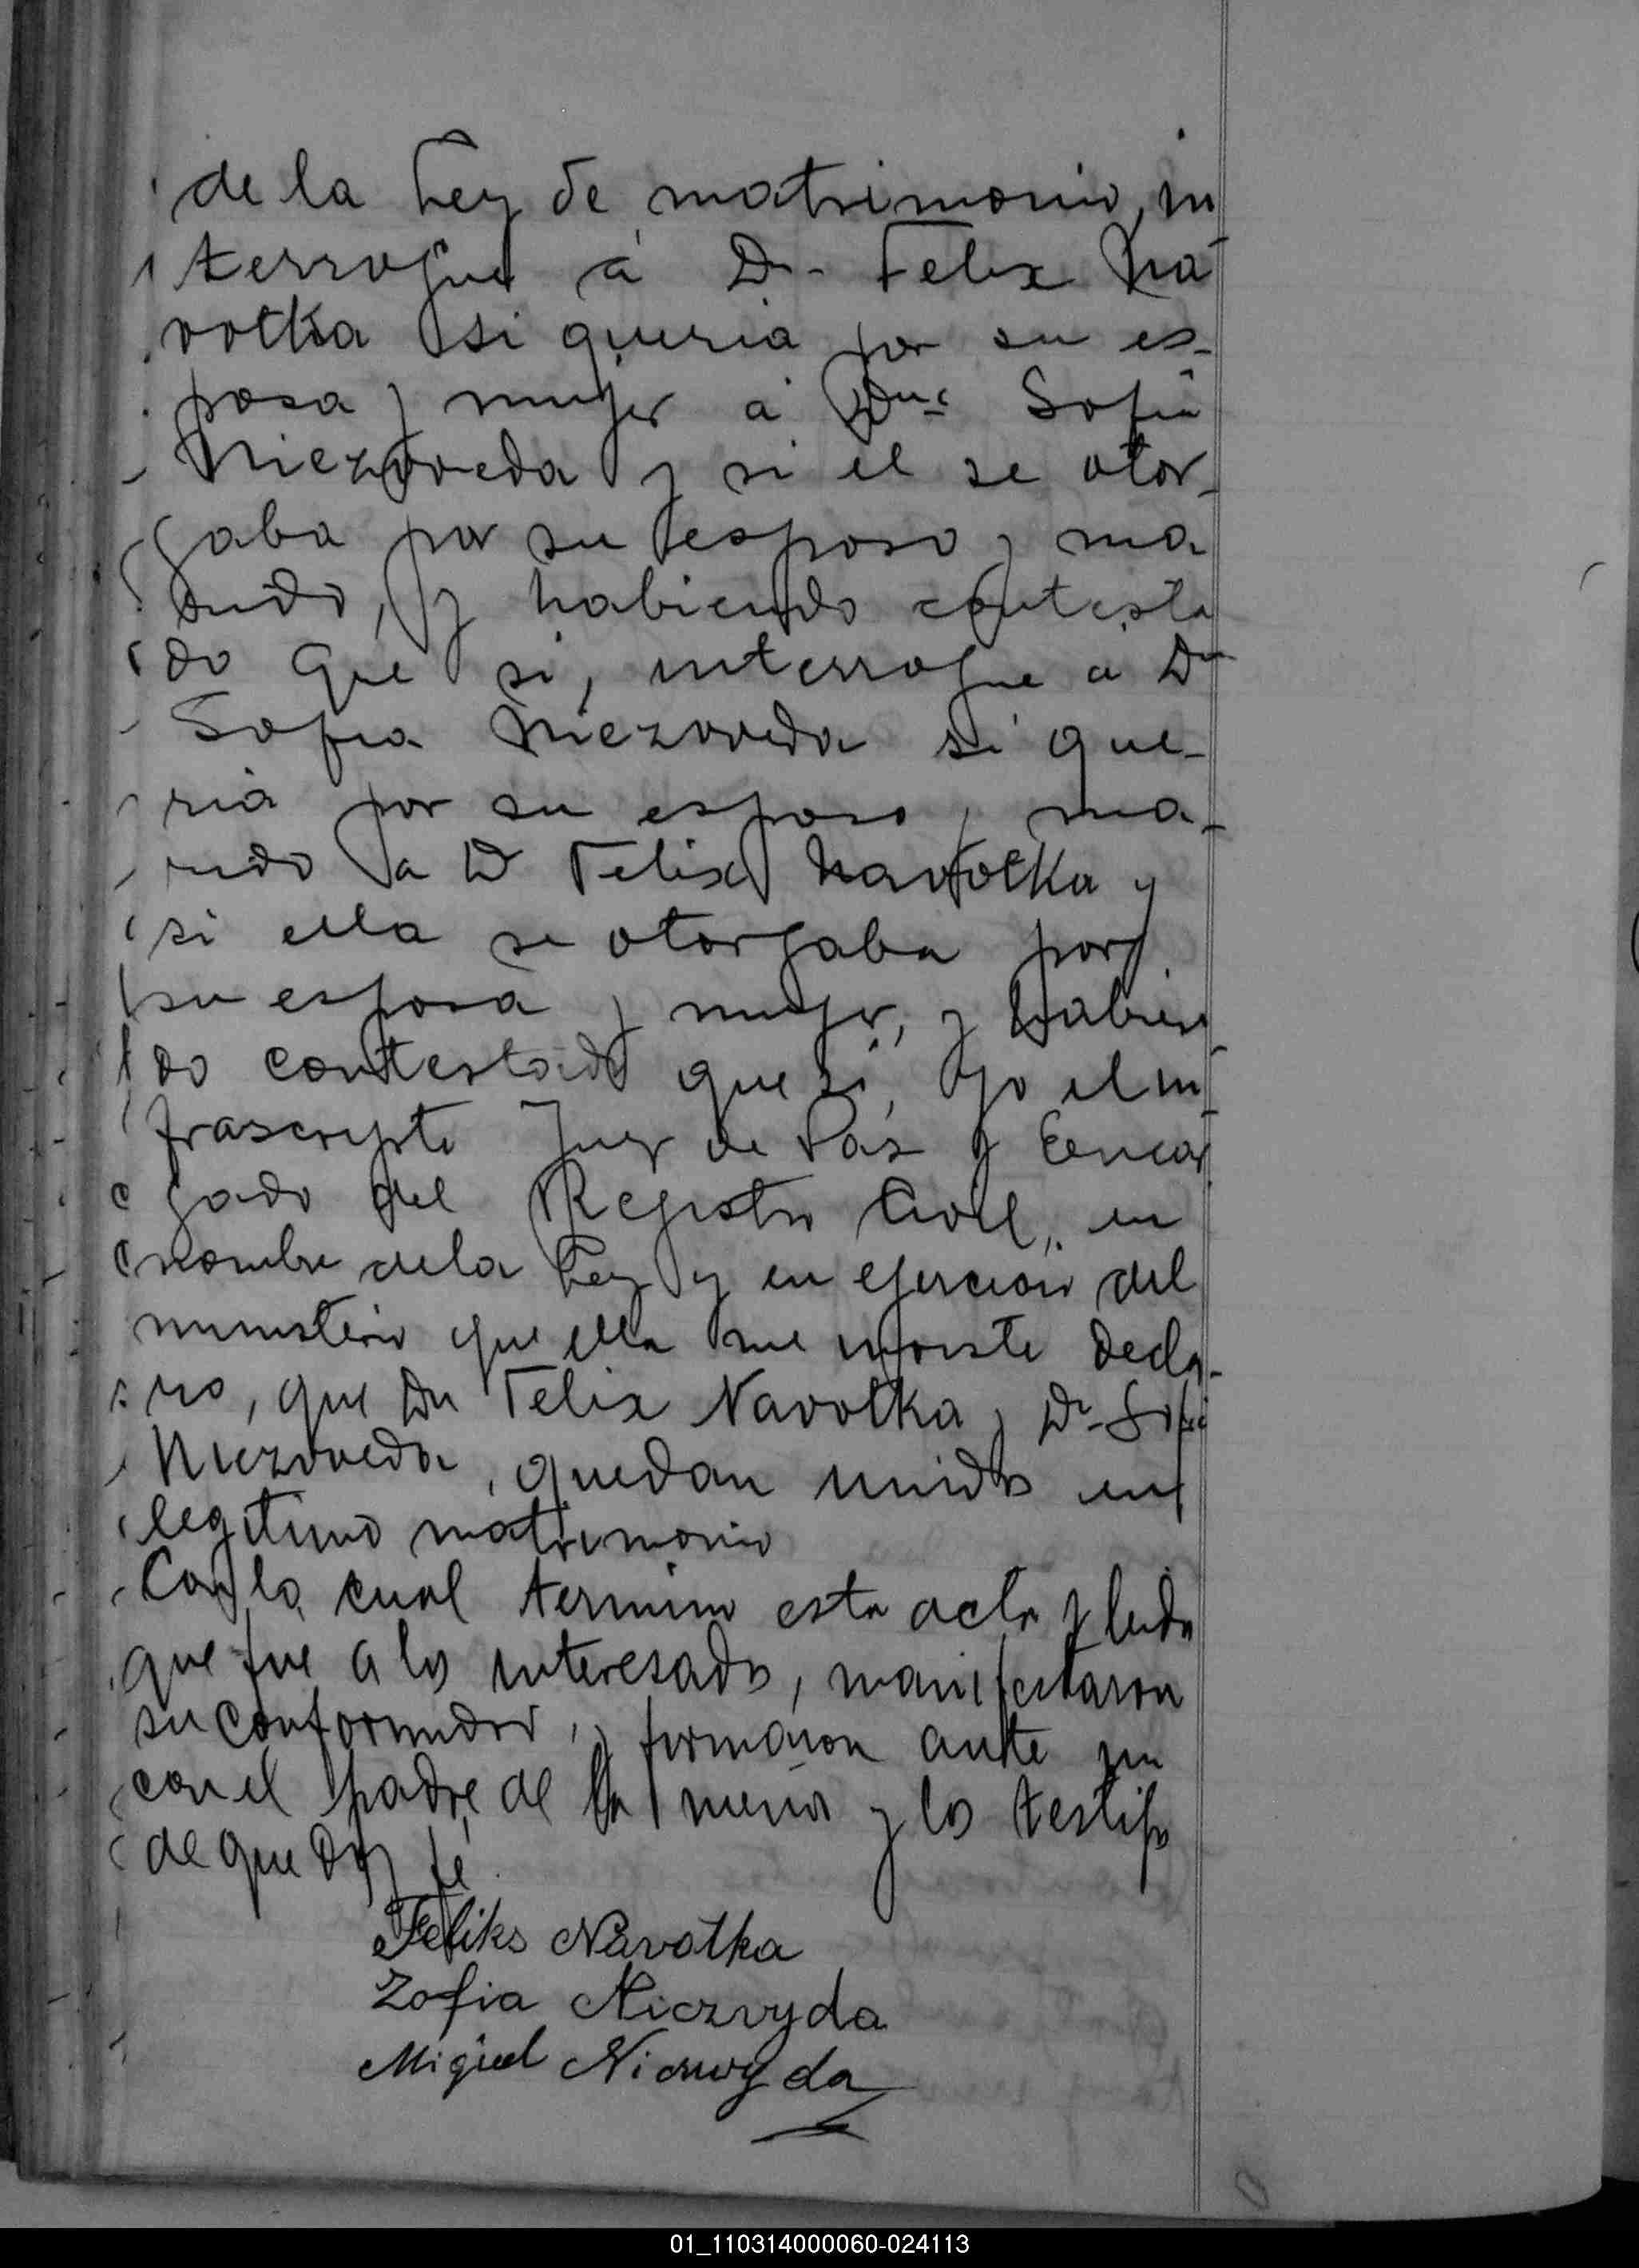 de la Ley de matrimonio, in
terrogué á Dn. Felix Na
votka si queria por su es-
posa y mujer á Dna Sofia
Niezoveda y si el se otor-
gaba por su esposo y ma
rido, y habiendo contesta
do que si, interrogue a Dna
Sofia Niezoveda si que-
ria por su esposo y ma-
rido a D Felix Navotka y
si ella se otorgaba por
su esposa y mujer, y habien
do contestado que si, yo el in
frascripto Juez de Paz y Encar
gado del Registro Civil, en
nombre de la Ley y en ejercicio del
ministerio que ella me inviste decla-
ro, que Dn Felix Navotka y Da Sofia
Niezoveda, quedan unidos en
legitimo matrimonio
Con lo cual termino esta acta y leida
que fue a los interesados, manifestaron
su conformidad, y firmaron ante mi
con el padre de la y los testigos
de que doy fé.
Feliks Navotka
Zofia Niezvyda
Miguel Niezwyda
01_110314000060-024113